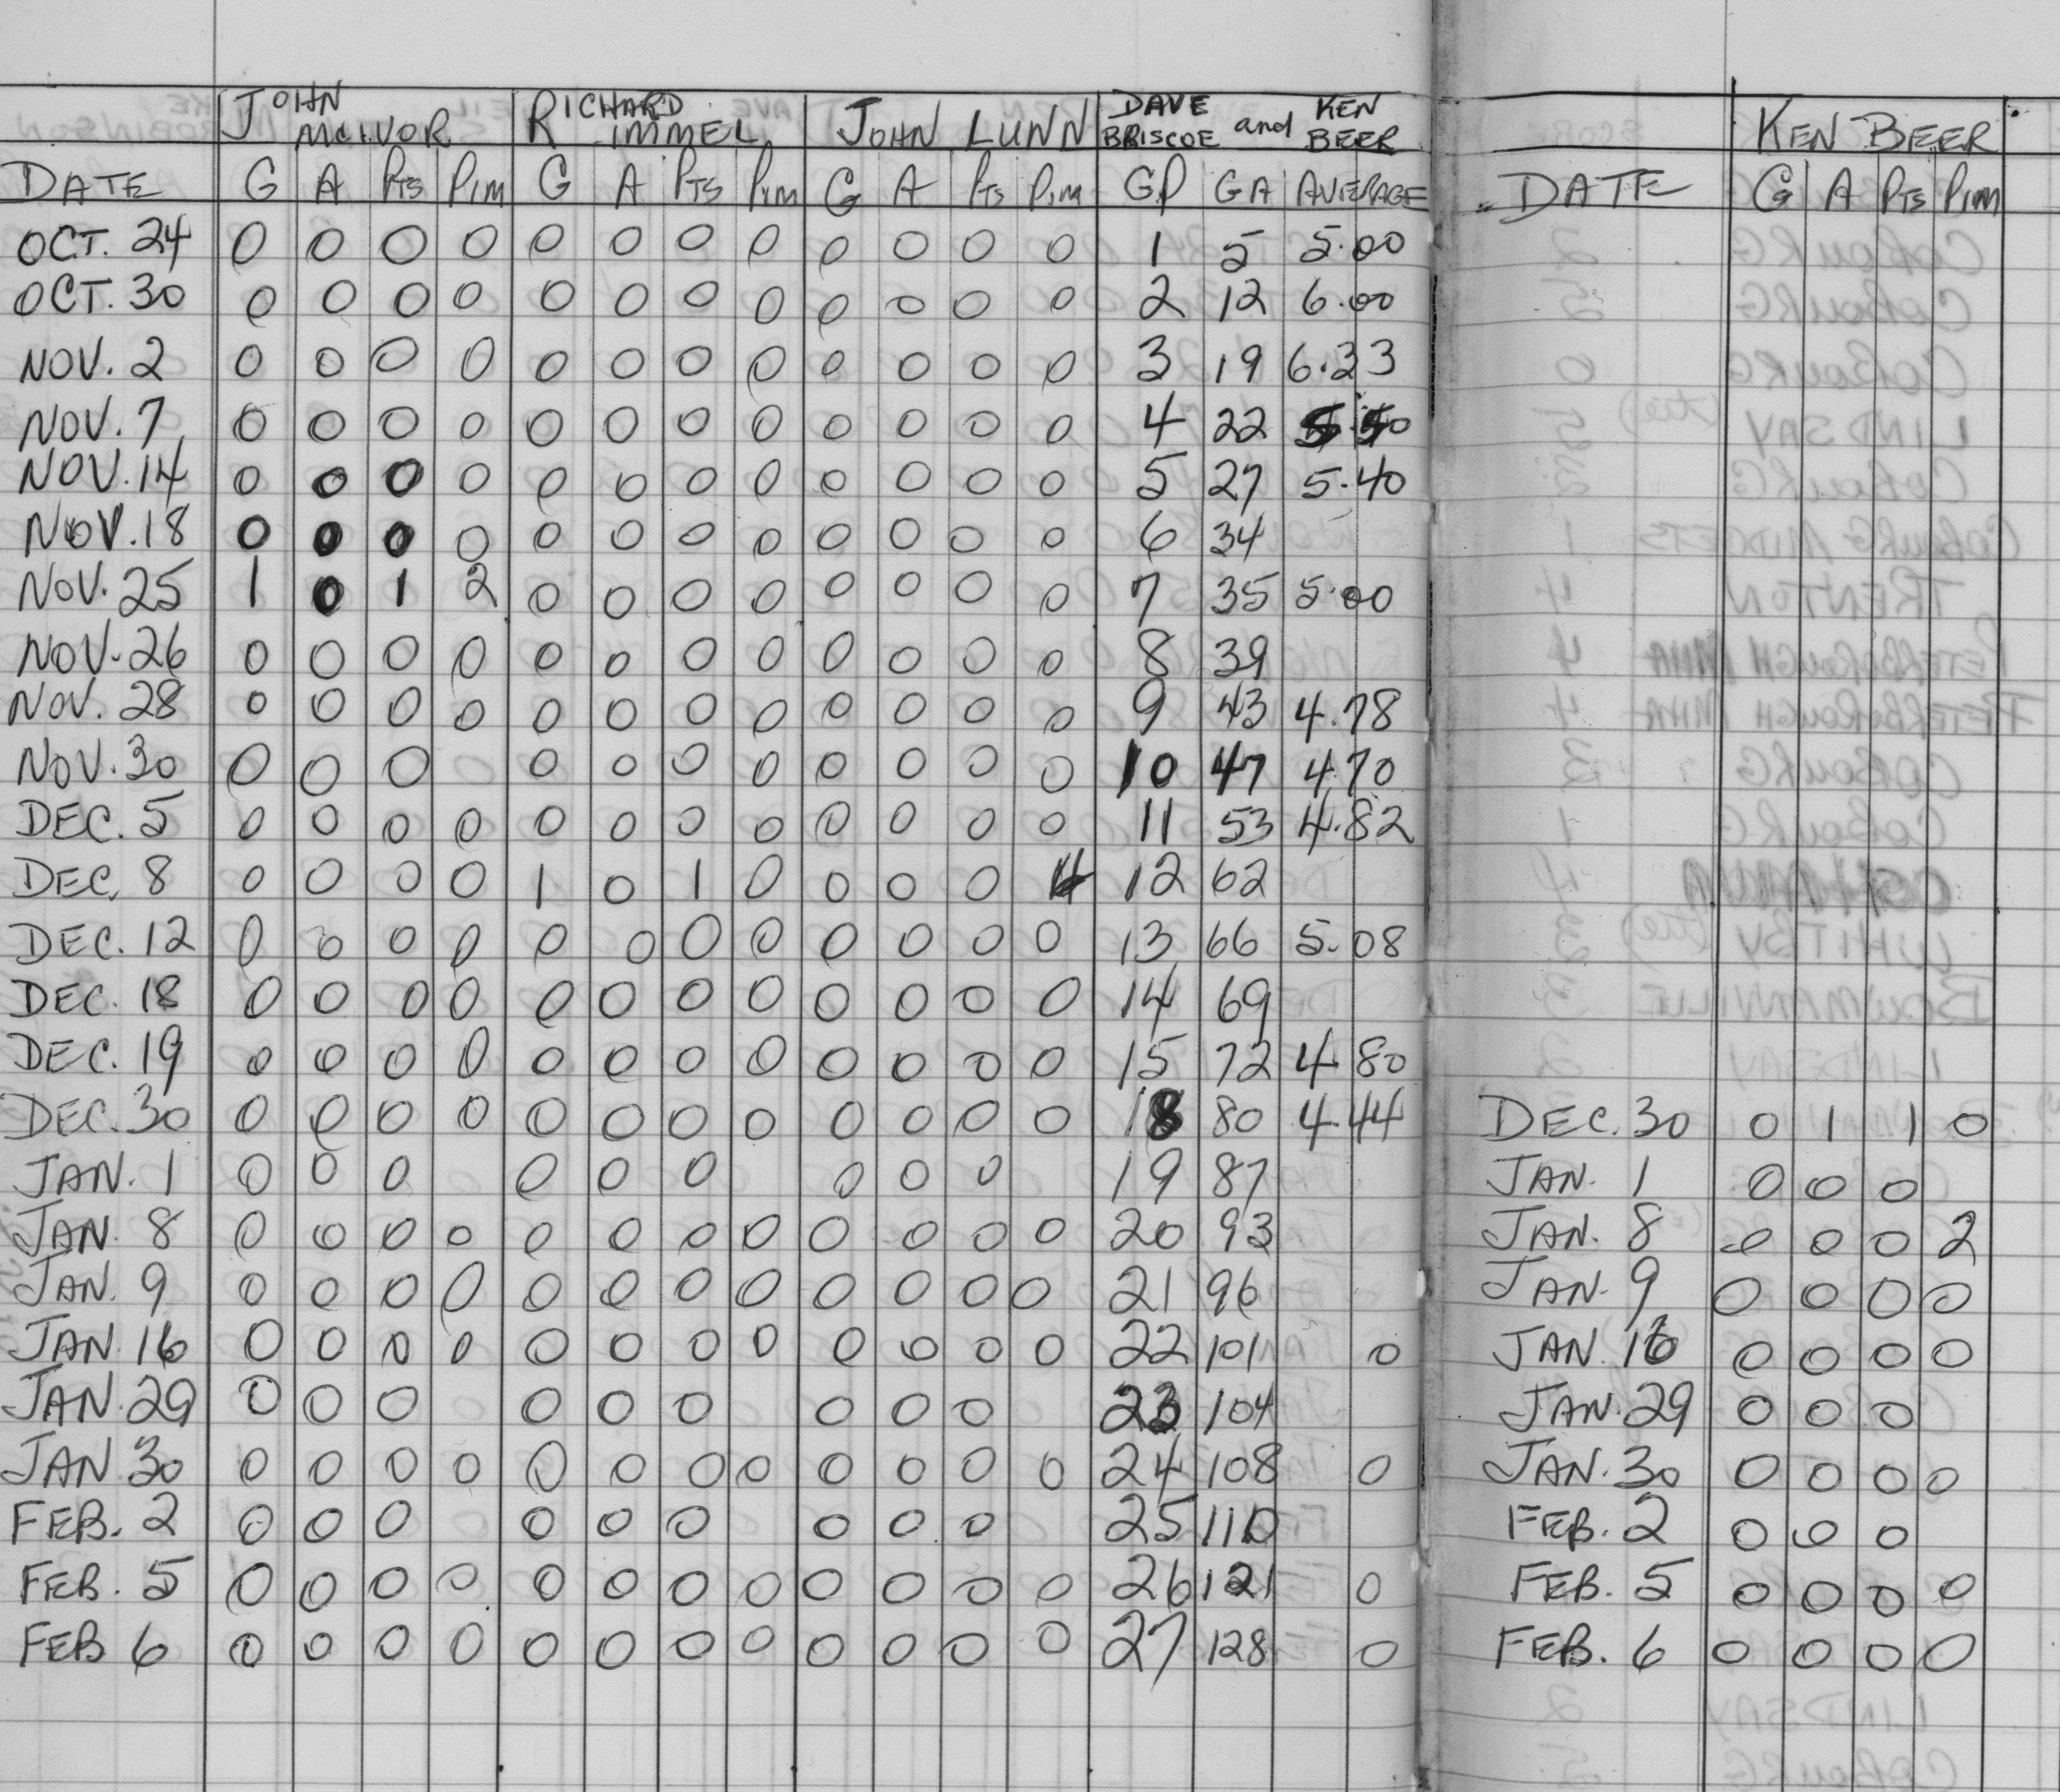 JOHN MCIVOR RICHARD IMMEL JOHN LUNN DAVE BRISCOE and KEN BEER
DATE G A PTS PIM G A PTS PIM G A PTS PIM GP GA AVERAGE
OCT. 24 0 0 0 0 0 0 0 0 0 0 0 0 1 5 5.00
OCT. 30 0 0 0 0 0 0 0 0 0 0 0 0 2 12 6.00
NOV. 2 0 0 0 0 0 0 0 0 0 0 0 0 3 19 6.33
NOV. 7 0 0 0 0 0 0 0 0 0 0 0 0 4 22 5.50
NOV. 14 0 0 0 0 0 0 0 0 0 0 0 0 5 27 5.40
NOV. 18 0 0 0 0 0 0 0 0 0 0 0 0 6 34
NOV. 25 1 0 1 2 0 0 0 0 0 0 0 0 7 35 5.00
NOV. 26 0 0 0 0 0 0 0 0 0 0 0 0 8 39
NOV. 28 0 0 0 0 0 0 0 0 0 0 0 0 9 43 4.78
NOV. 30 0 0 0 0 0 0 0 0 0 0 0 10 47 4.70
DEC. 5 0 0 0 0 0 0 0 0 0 0 0 0 11 53 4.82
DEC. 8 0 0 0 0 1 0 1 0 0 0 0 4 12 62
DEC. 12 0 0 0 0 0 0 0 0 0 0 0 0 13 66 5.08
DEC. 18 0 0 0 0 0 0 0 0 0 0 0 0 14 69
DEC. 19 0 0 0 0 0 0 0 0 0 0 0 0 15 72 4.80
DEC. 30 0 0 0 0 0 0 0 0 0 0 0 0 18 80 4.44
JAN. 1 0 0 0 0 0 0 0 0 0 19 87
JAN. 8 0 0 0 0 0 0 0 0 0 0 0 0 20 93
JAN. 9 0 0 0 0 0 0 0 0 0 0 0 0 21 96
JAN. 16 0 0 0 0 0 0 0 0 0 0 0 0 22 101 0
JAN. 29 0 0 0 0 0 0 0 0 0 23 104
JAN. 30 0 0 0 0 0 0 0 0 0 0 0 0 24 108 0
FEB. 2 0 0 0 0 0 0 0 0 0 25 110
FEB. 5 0 0 0 0 0 0 0 0 0 0 0 0 26 121 0
FEB 6 0 0 0 0 0 0 0 0 0 0 0 0 27 128 0
KEN BEER
DATE G A PTS PIM
DEC. 30 0 1 1 0
JAN. 1 0 0 0
JAN. 8 0 0 0 2
JAN. 9 0 0 0 0
JAN. 16 0 0 0 0
JAN. 29 0 0 0
JAN. 30 0 0 0 0
FEB. 2 0 0 0
FEB. 5 0 0 0 0
FEB. 6 0 0 0 0